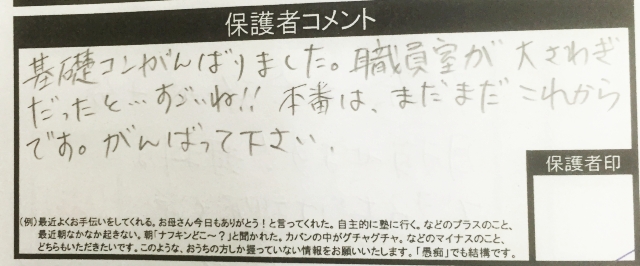 保護者コメント
基礎コンがんばりました。職員室が大さわぎ
だったと…すごいね!! 本番は、まだまだこれから
です。がんばって下さい.
保護者印
(例)最近よくお手伝いをしてくれる。お母さん今日もありがとう!と言ってくれた。自主的に塾に行く。などのプラスのこと、
最近朝なかなか起きない。朝「ナフキンどこ〜?」と聞かれた。カバンの中がグチャグチャ。などのマイナスのこと、
どちらもいただきたいです。このような、おうちの方しか握っていない情報をお願いいたします。「愚痴」でも結構です。